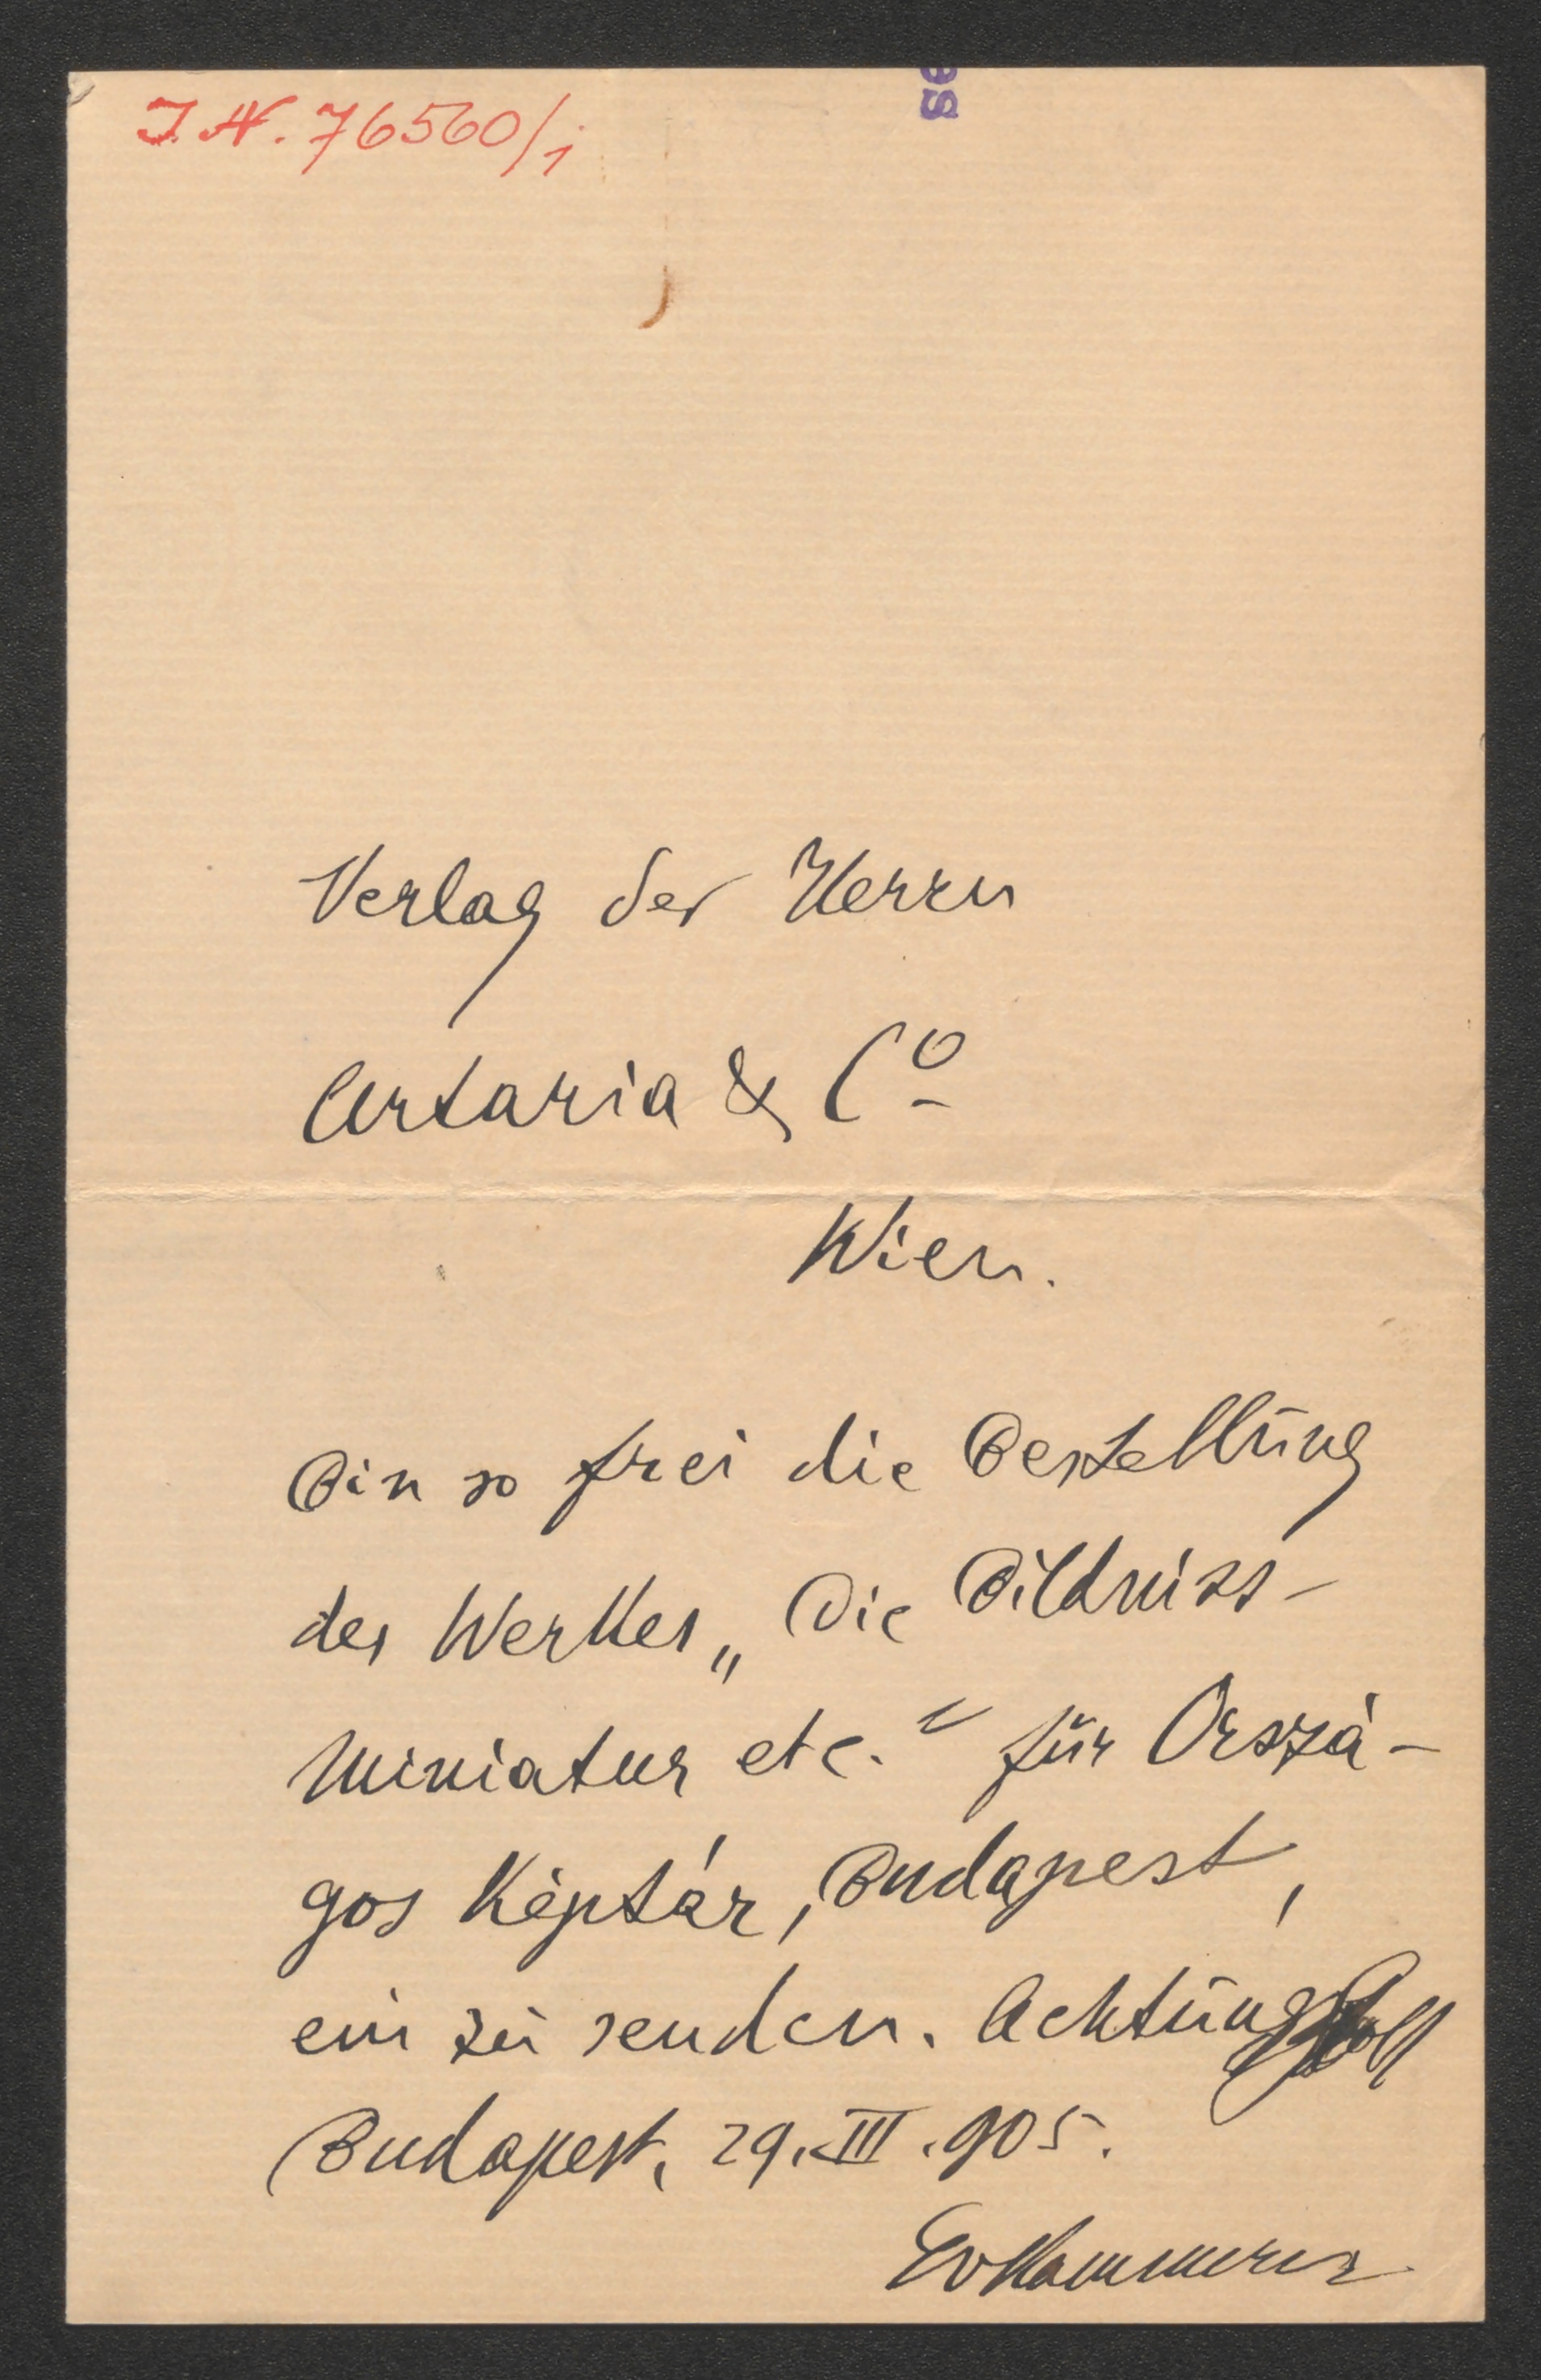 I. N. 76560/1
se
Verlag der Herrn
Artaria & Co
Wien.
Bin so frei die Bestellung
des Werkes „Die Bildniss-
miniatur etc.“ für Orszá-
gos Képtár, Budapest,
ein zu senden. Achtungsvoll
Budapest, 29. III. 905.
EvKammerer